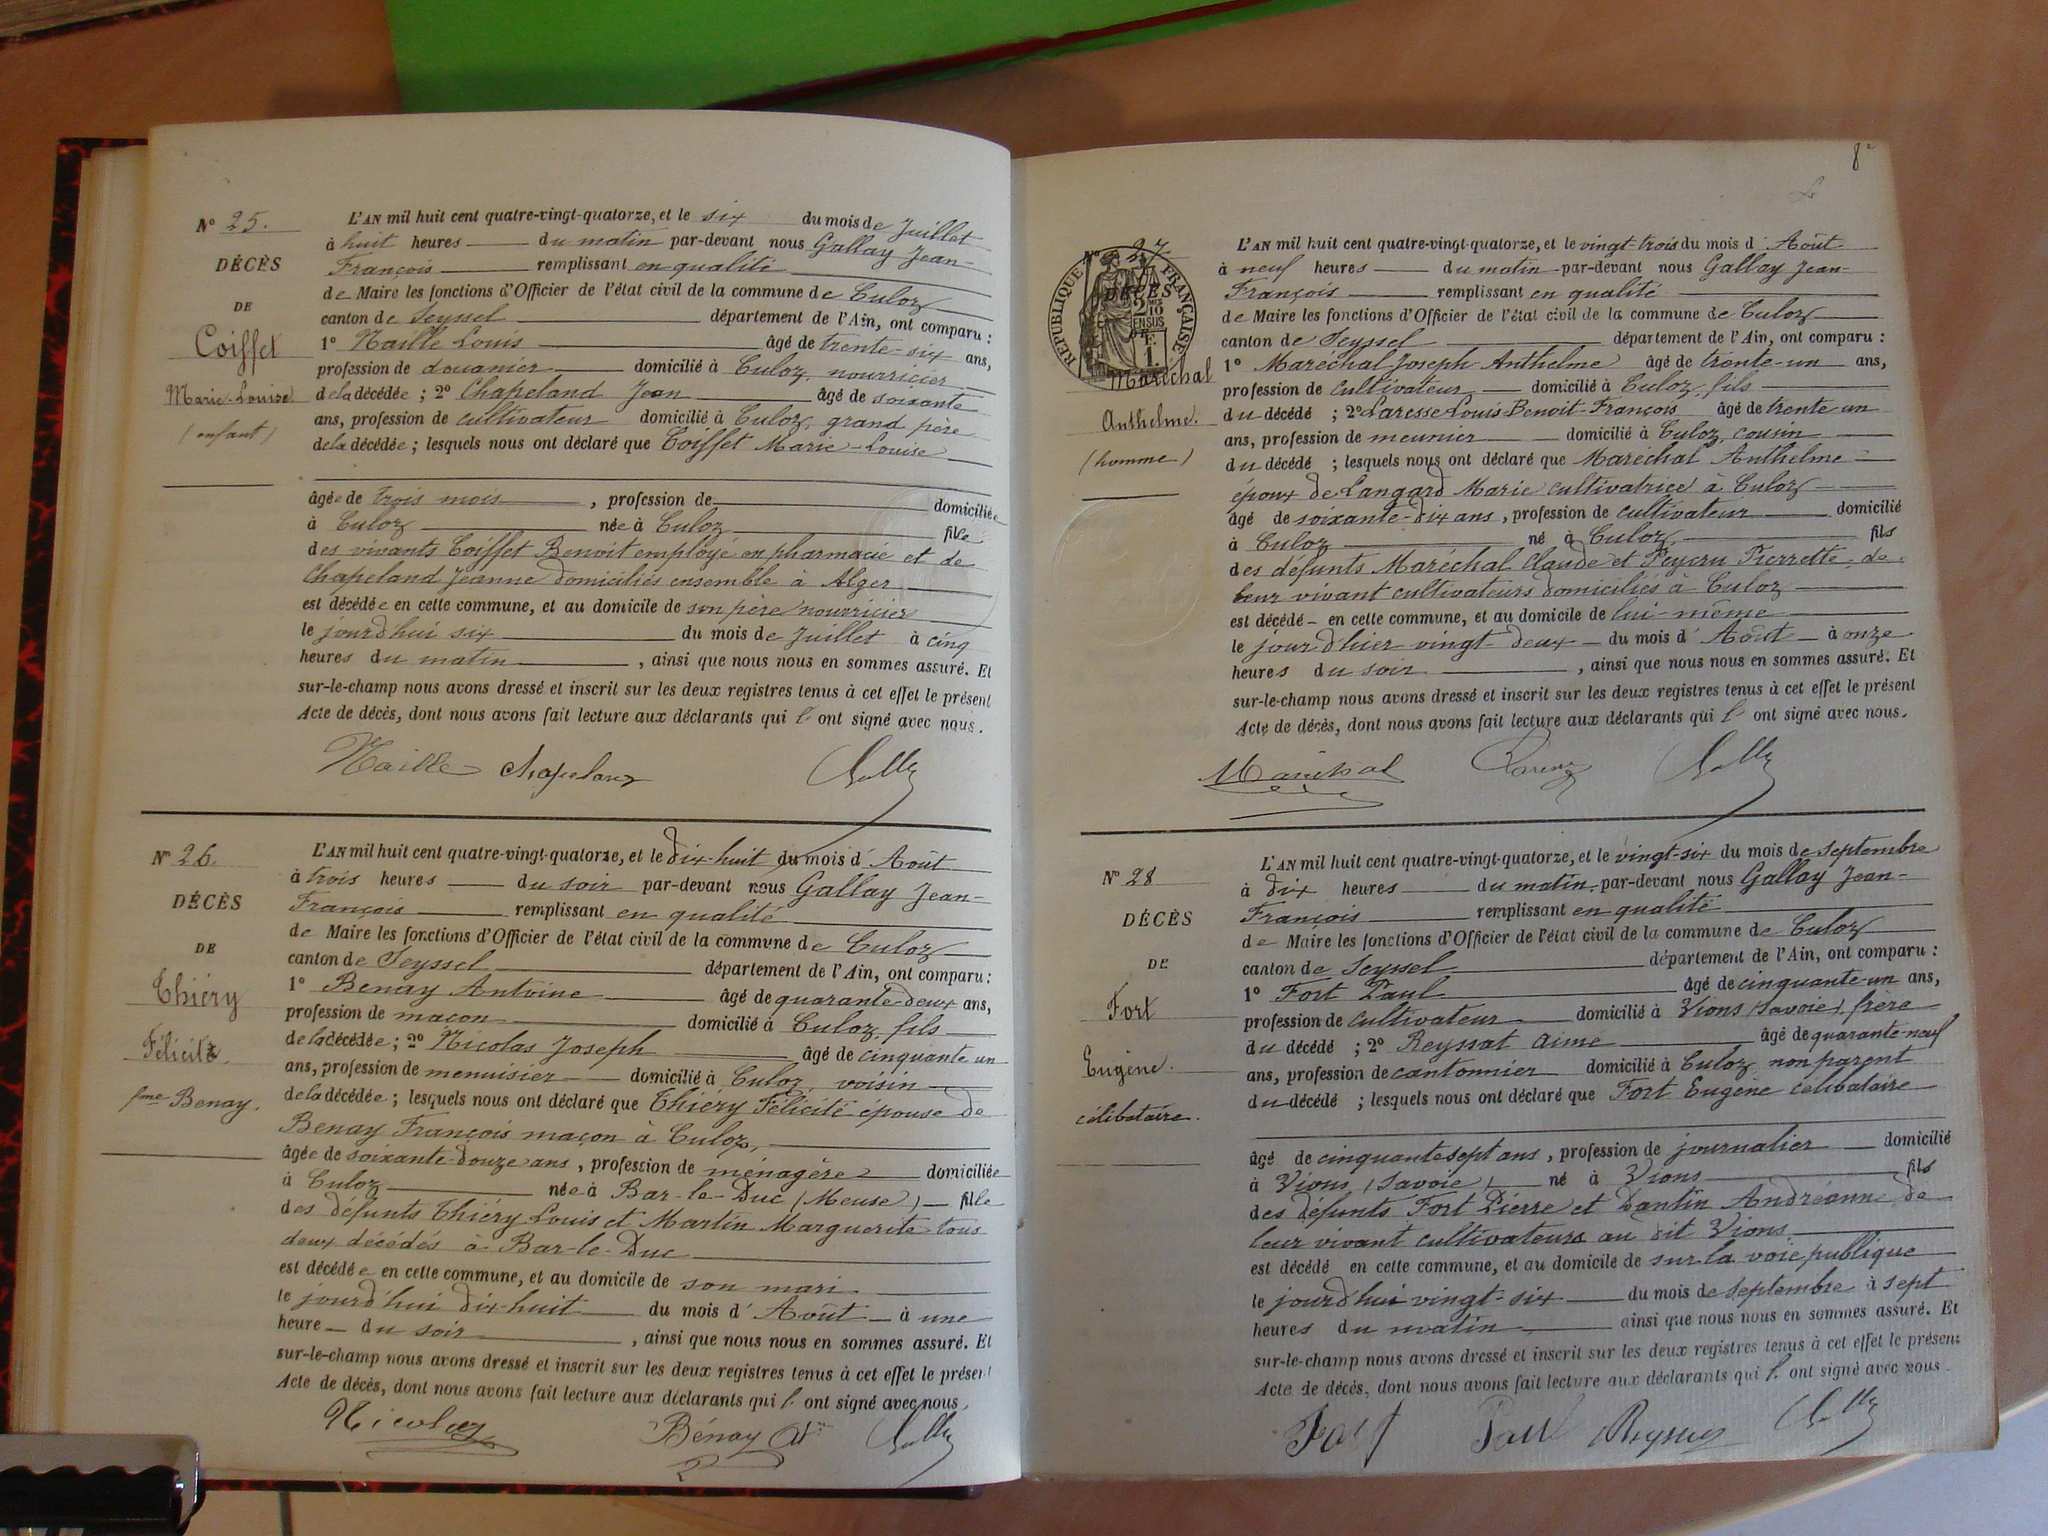 N° 25.
DÉCÈS
DE
Coiffet
Marie-Louise
(enfant)
L'AN mil huit cent quatre-vingt-quatorze, et le six du mois de Juillet
à huit heures du matin par-devant nous Gallay Jean-
François remplissant en qualité
de Maire les fonctions d'Officier de l'état civil de la commune de Culoz
canton de Seyssel département de l'Ain, ont comparu :
1° Naille Louis âgé de trente-six ans,
profession de douanier domicilié à Culoz, nourricier
de la décédée ; 2° Chapeland Jean âgé de soixante
ans, profession de cultivateur domicilié à Culoz, grand père
de la décédée ; lesquels nous ont déclaré que Coiffet Marie-Louise
âgée de trois mois , profession de domiciliée
à Culoz née à Culoz fille
des vivants Coiffet Benoit employé en pharmacie et de
Chapeland Jeanne domiciliés ensemble à Alger
est décédée en cette commune, et au domicile de son père nourricier
le jourd'hui six du mois de Juillet à cinq
heures du matin , ainsi que nous nous en sommes assuré. Et
sur-le-champ nous avons dressé et inscrit sur les deux registres tenus à cet effet le présent
Acte de décès, dont nous avons fait lecture aux déclarants qui l' ont signé avec nous.
Naille Chapeland Gallay
N° 26.
DÉCÈS
DE
Thiéry
Félicité.
fme Benay.
L'AN mil huit cent quatre-vingt-quatorze, et le dix-huit du mois d'Août
à trois heures du soir par-devant nous Gallay Jean-
François remplissant en qualité
de Maire les fonctions d'Officier de l'état civil de la commune de Culoz
canton de Seyssel département de l'Ain, ont comparu :
1° Benay Antoine âgé de quarante-deux ans,
profession de maçon domicilié à Culoz, fils
de la décédée ; 2° Nicolas Joseph âgé de cinquante un
ans, profession de menuisier domicilié à Culoz, voisin
de la décédée ; lesquels nous ont déclaré que Thiéry Félicité épouse de
Benay François maçon à Culoz,
âgée de soixante-douze ans , profession de ménagère domiciliée
à Culoz née à Bar-le-Duc (Meuse) fille
des défunts Thiéry Louis et Martin Marguerite tous
deux décédés à Bar-le-Duc
est décédée en cette commune, et au domicile de son mari
le jourd'hui dix-huit du mois d'Août à une
heure du soir , ainsi que nous nous en sommes assuré. Et
sur-le-champ nous avons dressé et inscrit sur les deux registres tenus à cet effet le présent
Acte de décès, dont nous avons fait lecture aux déclarants qui l' ont signé avec nous.
Nicolas Bénay Ant Gallay
8
N° 27
DÉCÈS
RÉPUBLIQUE FRANÇAISE
2/10 EN SUS
1 F.
Maréchal
Anthelme.
(homme)
L'AN mil huit cent quatre-vingt-quatorze, et le vingt-trois du mois d'Août
à neuf heures du matin par-devant nous Gallay Jean-
François remplissant en qualité
de Maire les fonctions d'Officier de l'état civil de la commune de Culoz
canton de Seyssel département de l'Ain, ont comparu :
1° Maréchal Joseph-Anthelme âgé de trente-un ans,
profession de cultivateur domicilié à Culoz, fils
du décédé ; 2° Laresse Louis-Benoit-François âgé de trente un
ans, profession de meunier domicilié à Culoz, cousin
du décédé ; lesquels nous ont déclaré que Maréchal Anthelme
époux de Langard Marie cultivatrice à Culoz
âgé de soixante-dix ans , profession de cultivateur domicilié
à Culoz né à Culoz fils
des défunts Maréchal Claude et Peycru Pierrette, de
leur vivant cultivateurs domiciliés à Culoz
est décédé en cette commune, et au domicile de lui-même
le jour d'hier vingt-deux du mois d'Août à onze
heures du soir , ainsi que nous nous en sommes assuré. Et
sur-le-champ nous avons dressé et inscrit sur les deux registres tenus à cet effet le présent
Acte de décès, dont nous avons fait lecture aux déclarants qui l' ont signé avec nous.
Maréchal Gallay
N° 28
DÉCÈS
DE
Fort
Eugène.
célibataire.
L'AN mil huit cent quatre-vingt-quatorze, et le vingt-six du mois de septembre
à dix heures du matin par-devant nous Gallay Jean-
François remplissant en qualité
de Maire les fonctions d'Officier de l'état civil de la commune de Culoz
canton de Seyssel département de l'Ain, ont comparu :
1° Fort Paul âgé de cinquante-un ans,
profession de cultivateur domicilié à Vions (Savoie), frère
du décédé ; 2° Reyssat Aimé âgé de quarante-neuf
ans, profession de cantonnier domicilié à Culoz non parent
du décédé ; lesquels nous ont déclaré que Fort Eugène célibataire
âgé de cinquante sept ans , profession de journalier domicilié
à Vions (Savoie) né à Vions fils
des défunts Fort Pierre et Dantin Andréanne de
leur vivant cultivateurs au dit Vions
est décédé en cette commune, et au domicile de sur la voie publique
le jourd'hui vingt-six du mois de septembre à sept
heures du matin ainsi que nous nous en sommes assuré. Et
sur-le-champ nous avons dressé et inscrit sur les deux registres tenus à cet effet le présent
Acte de décès, dont nous avons fait lecture aux déclarants qui l' ont signé avec nous.
Fort Paul Gallay